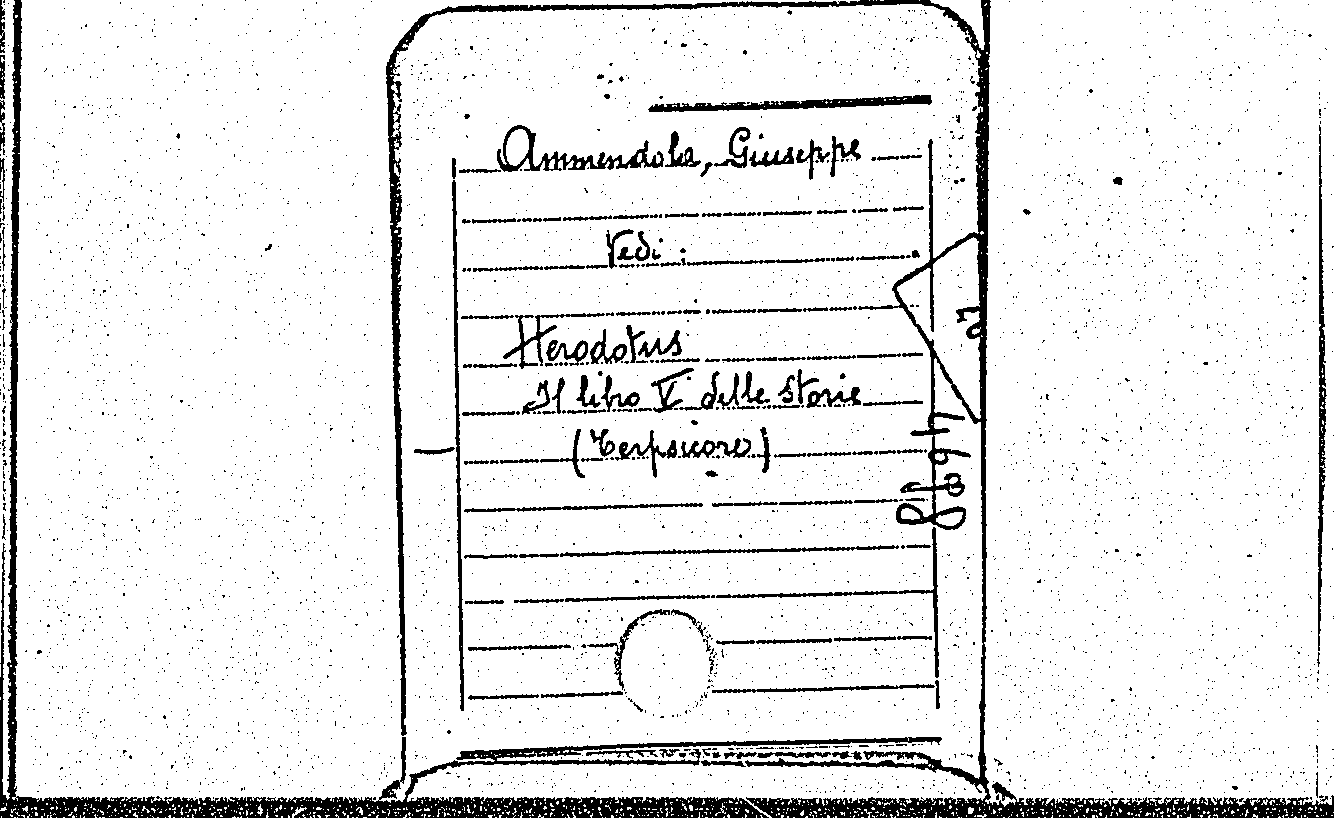 Ammendola, Giuseppe
Vedi :
Herodotus
Il libro V delle Storie
(Terpsicore)